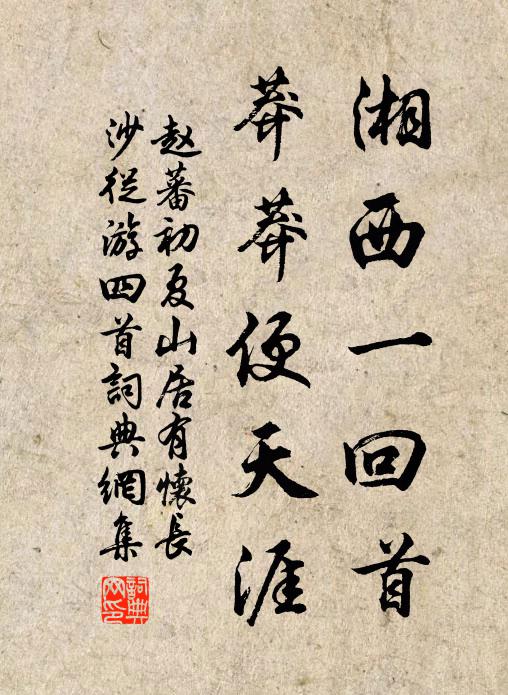 湘西一回首
莽莽便天涯
赵蕃初夏山居有懷長
沙從游四首詞典網集
詞典網印